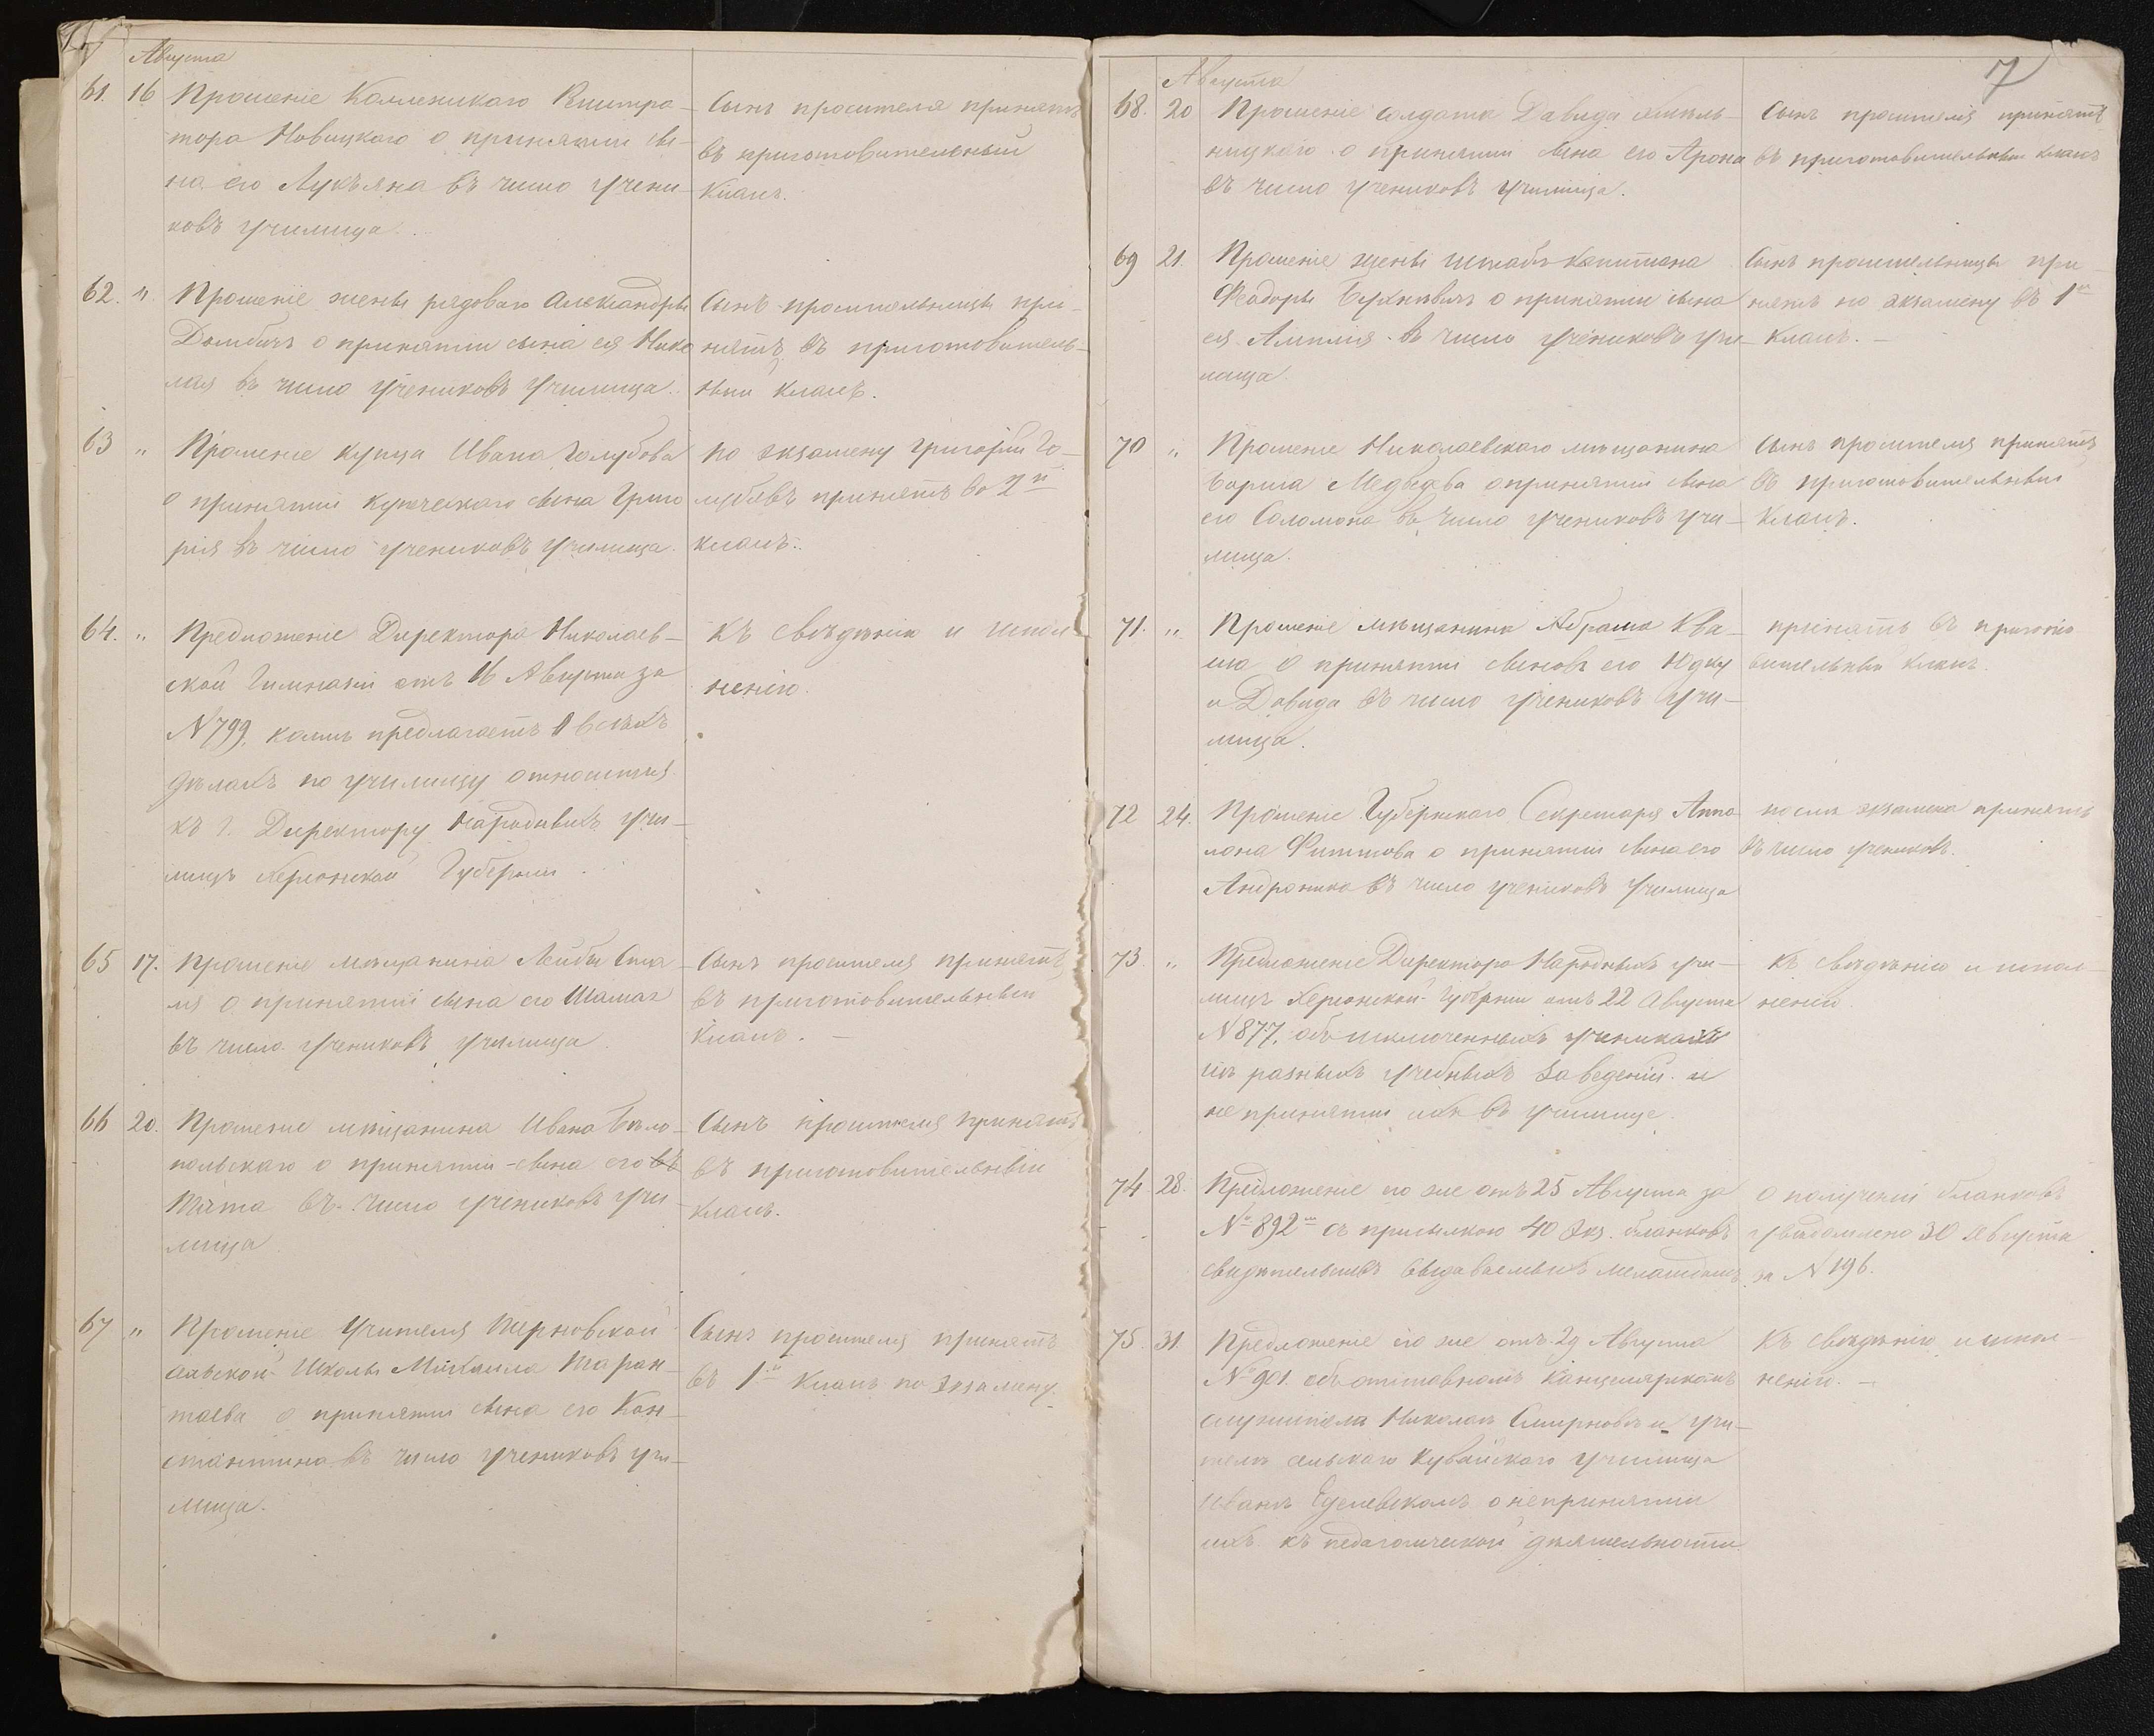 Августа
61. 16 Прошеніе Коллежскаго Регистра-
тора Новицкаго о принятіи сы-
на его Лукьяна въ число учени-
ковъ училища.
Сынъ просителя принятъ
въ приготовительный
классъ.
62. " Прошеніе жены рядоваго Александры
Домбичъ о принятіи сына ея Нико
лая въ число учениковъ училища.
Сынъ просительницы при-
нятъ въ приготовитель-
ный классъ.
63 " Прошеніе купца Ивана Голубова
о принятіи купеческаго сына Григо
рія въ число учениковъ училища.
по экзамену Григорій Го-
лубовъ принятъ во 2й
классъ.
64. " Предложеніе Директора Николаев-
ской Гимназіи отъ 16 Августа за
№ 799, коимъ предлагаетъ о всѣхъ
дѣлахъ по училищу относиться
къ г. Директору Народныхъ учи-
лищъ Херсонской Губерніи.
Къ свѣдѣнію и испол
ненію.
65 17. Прошеніе мѣщанина Лейбы Спа-
ля о принятіи сына его
въ число учениковъ училища.
Сынъ просителя принятъ
въ приготовительный
классъ. —
66 20. Прошеніе мѣщанина Ивана Бѣло-
польскаго о принятіи сына его въ
Тита въ число учениковъ учи-
лища
Сынъ просителя принятъ
въ приготовительный
классъ.
67 " Прошеніе Учителя Терновской
сельской Школы Михаила Таран-
таева о принятіи сына его Кон-
стантина въ число учениковъ учи-
лища.
Сынъ просителя принятъ
въ 1й классъ по экзамену.
7
Августа
68. 20 Прошеніе солдата Давида Хмѣль-
ницкаго о принятіи сына его Арона
въ число учениковъ училища.
Сынъ просителя принятъ
въ приготовительный классъ
69 21. Прошеніе жены Штабсъ-Капитана
Феодоры о принятіи сына
ея въ число учениковъ учи-
лища.
Сынъ просительницы при-
нятъ по экзамену въ 1й
классъ. —
70 " Прошеніе Николаевскаго мѣщанина
Бориса Медвѣдева о принятіи сына
его Соломона въ число учениковъ учи-
лища.
Сынъ просителя принятъ
въ приготовительный
классъ.
71. " Прошеніе мѣщанина Абрама Ква-
ша о принятіи сыновъ его Юдку
и Давида въ число учениковъ учи-
лища.
принятъ въ пригото
вительный классъ.
72 24. Прошеніе Губернскаго Секретаря Аппо
лона Филипова о принятіи сына его
Андроника въ число учениковъ училища
послѣ экзамена принятъ
въ число учениковъ.
73. " Предложеніе Директора Народныхъ учи-
лищъ Херсонской Губерніи отъ 22 Августа
№ 877, объ исключенныхъ ученикахъ
изъ разныхъ учебныхъ заведеній и
не принятіи ихъ въ училище.
Къ свѣдѣнію и испол-
ненію.
74 28. Предложеніе его же отъ 25 Августа за
№ 892м съ присылкою 40 экз. бланковъ
свидѣтельствъ выдаваемыхъ
О полученіи бланковъ
увѣдомлено 30 Августа
за № 196.
75. 31. Предложеніе его же отъ 29 Августа
№ 901. объ отставномъ канцелярскомъ
служителѣ Николаѣ Смирновѣ и учи-
телѣ сельскаго Кубанскаго училища
Иванѣ о непринятіи
ихъ къ педагогической дѣятельности.
Къ свѣдѣнію и испол-
ненію. —